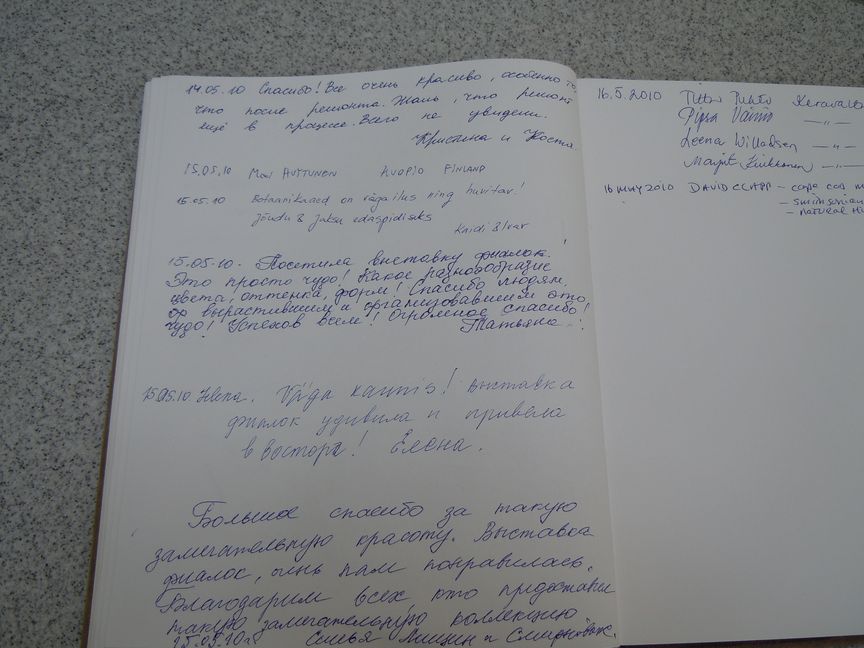 14.05.10 Спасибо! Все очень красиво, особенно то,
что после ремонта. Жаль, что ремонт
ещё в процессе. Всего не увидели.
Кристина и Костя.
15.05.10 HUTTUNEN KUOPIO FINLAND
15.05.10 Botaanikaaed on väga ilus ning huvitav!
Jõudu & jaksu edaspidiseks
Kaidi & Ivar
15.05.10. Посетила выставку фиалок.
Это просто чудо! Какое разнообразие
цвета, оттенка, форм! Спасибо людям,
вырастившим и организовавшим это
чудо! Успехов всем! Огромное спасибо!
Татьяна.
15.05.10 Jelena. Väga kaunis! Выставка
фиалок удивила и привела
в восторг! Елена.
Большое спасибо за такую
замечательную красоту. Выставка
фиалок, очень нам понравилась.
Благодарим всех кто предоставил
такую замечательную коллекцию
15.05.10г. Семья и
16.5.2010
Pirjo Väiniö —"—
Leena Willadsen —"—
Marjit —"—
16 MAY 2010 DAVID CLAPP - cape cod
- smithsonian
- natural